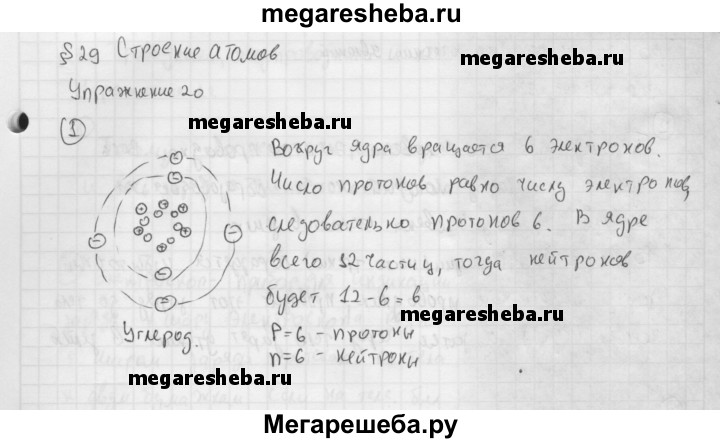 megaresheba.ru
§ 29 Строение атомов
megaresheba.ru
Упражнение 20
megaresheba.ru
1
Вокруг ядра вращается 6 электронов.
Число протонов равно числу электронов,
следовательно протонов 6. В ядре
всего 12 частиц, тогда нейтронов
будет 12-6=6
megaresheba.ru
Углерод.
P=6 - протоны
n=6 - нейтроны
megaresheba.ru
Мегарешеба.ру